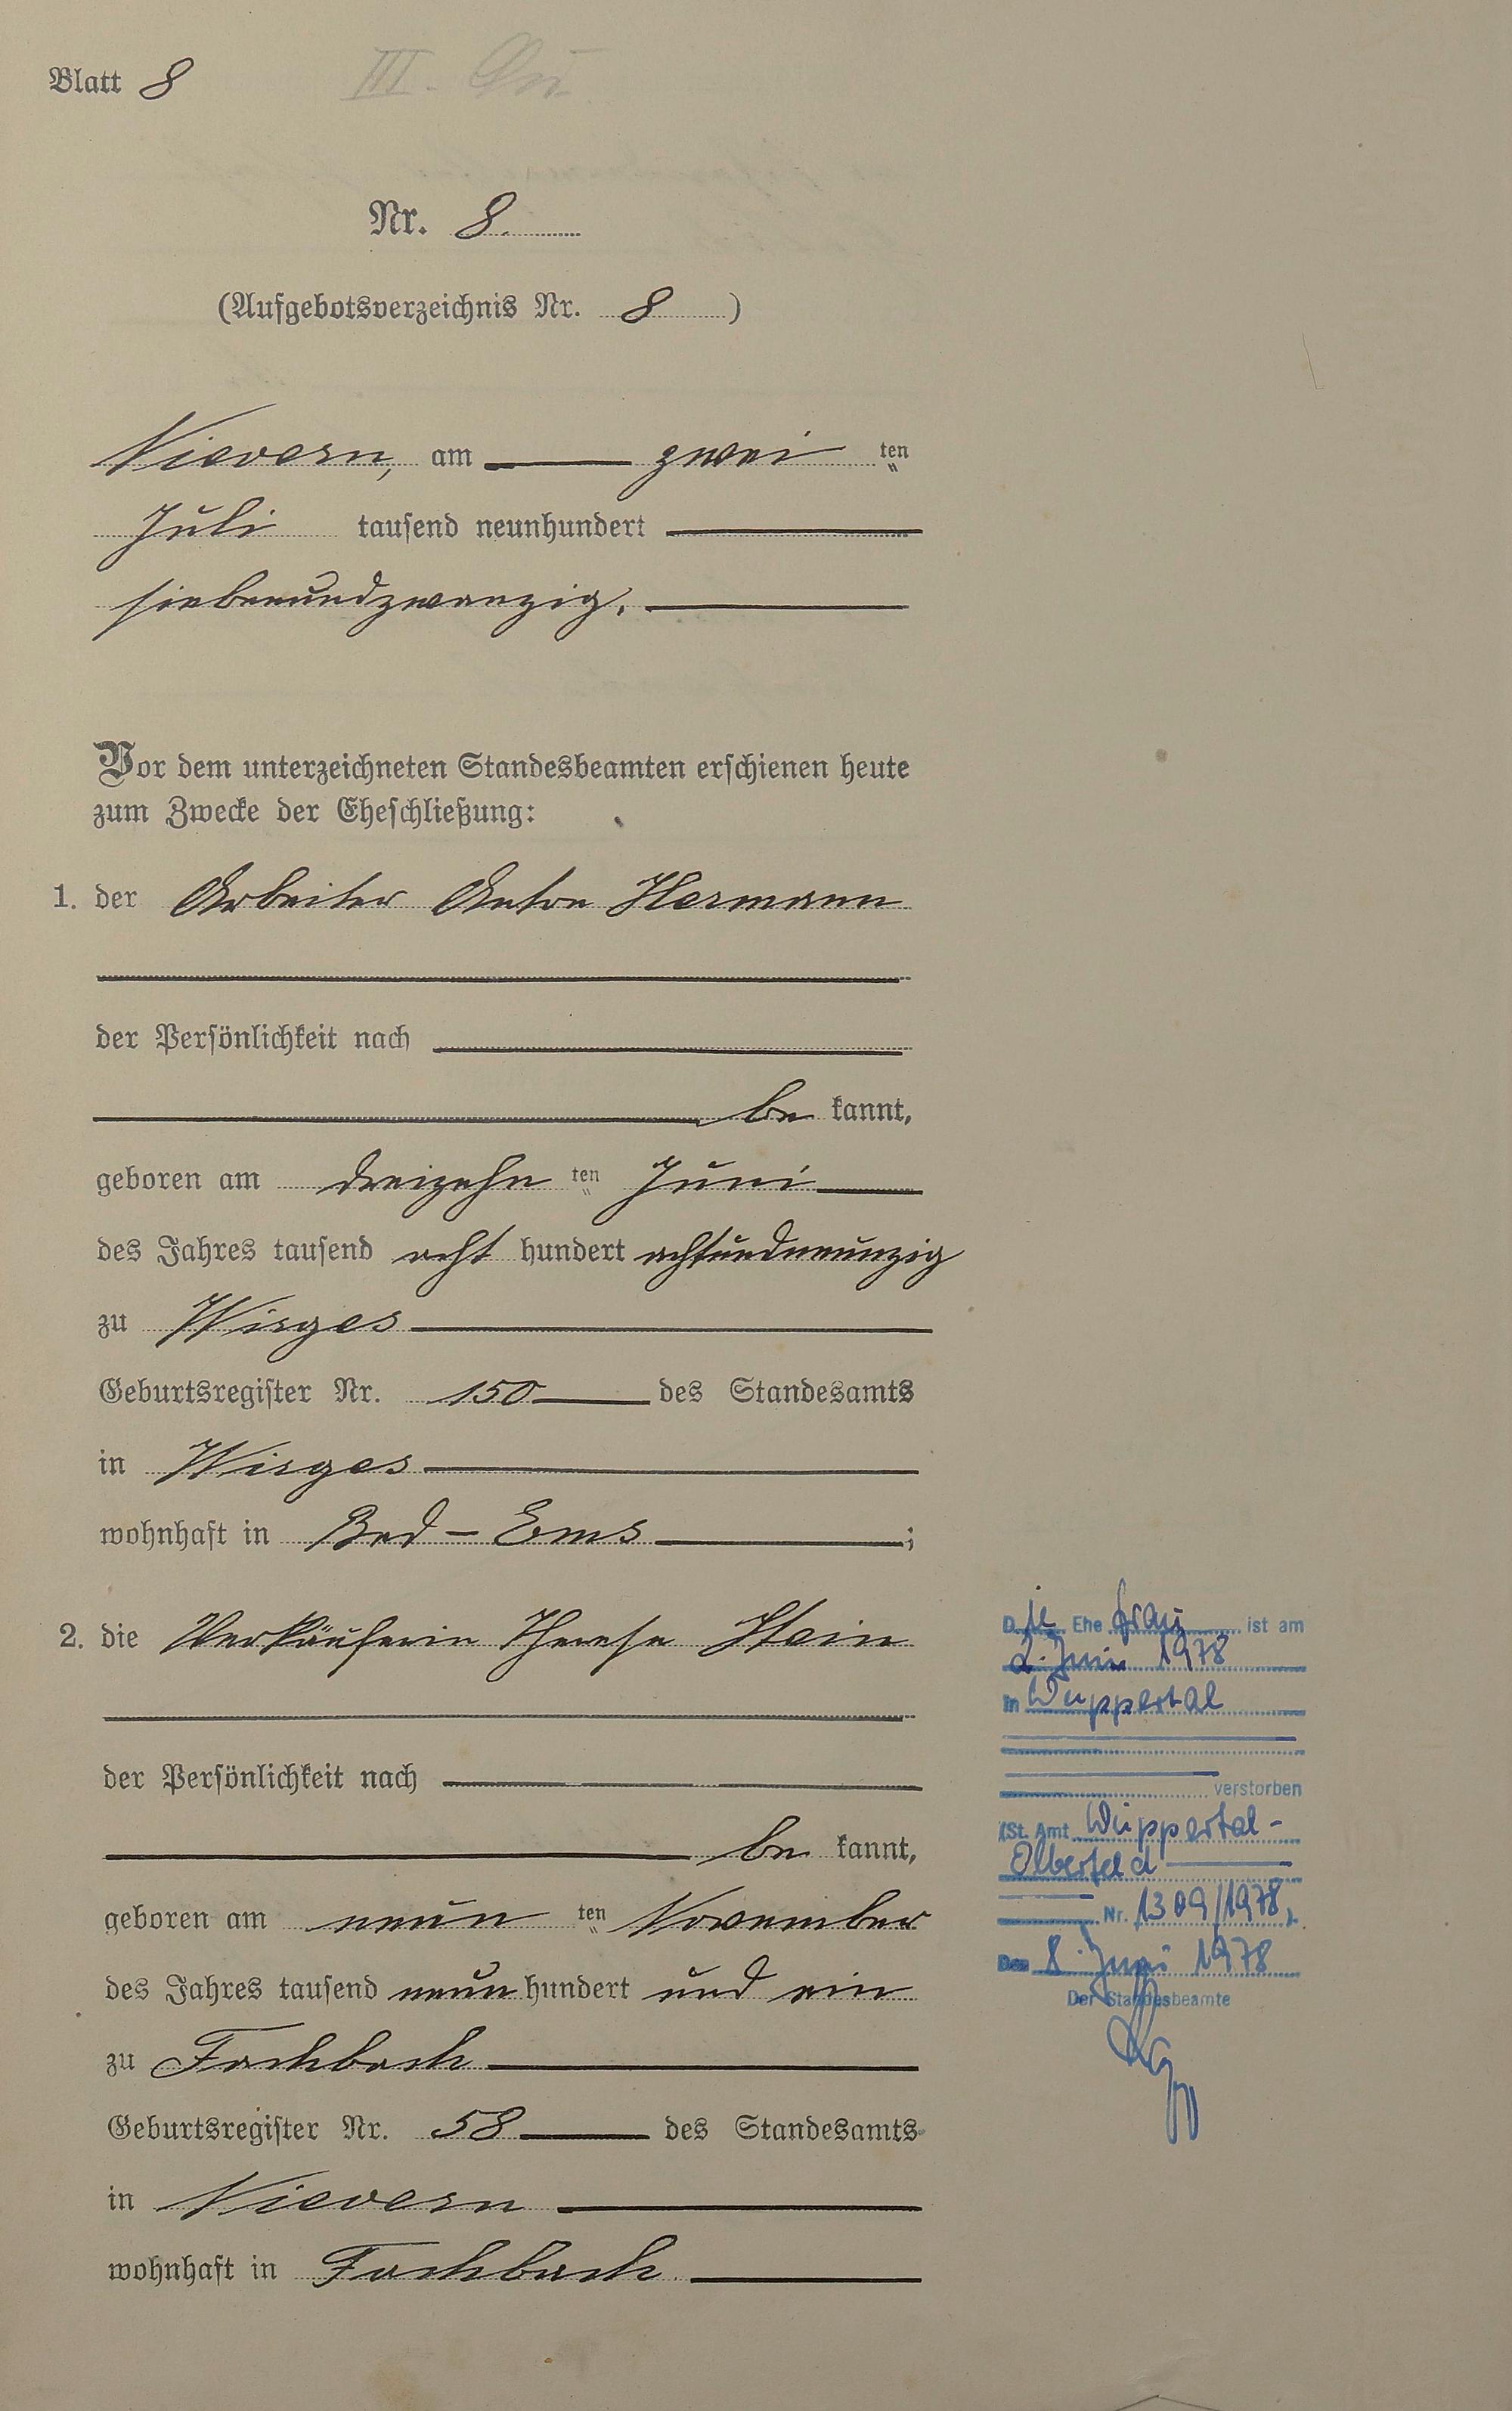 Blatt 8
III.
Nr. 8.
(Aufgebotsverzeichnis Nr. 8)
Nievern, am zwei ten
Juli tausend neunhundert
siebenundzwanzig.
Vor dem unterzeichneten Standesbeamten erschienen heute
zum Zwecke der Eheschließung:
1. der Arbeiter Anton Hermann
der Persönlichkeit nach
be kannt,
geboren am dreizehn ten Juni
des Jahres tausend acht hundert achtundneunzig
zu Wirges
Geburtsregister Nr. 150 des Standesamts
in Wirges
wohnhaft in Bad-Ems ;
2. die Verkäuferin Therese Stein
der Persönlichkeit nach
be kannt,
geboren am neun ten November
des Jahres tausend neun hundert und ein
zu Fachbach
Geburtsregister Nr. 58 des Standesamts
in Nievern
wohnhaft in Fachbach
Die Ehe frau ist am
2. Juni 1978
in Wuppertal
verstorben
(St. Amt Wuppertal-
Elberfeld
Nr. 1309/1978).
Den 8. Juni 1978
Der Standesbeamte